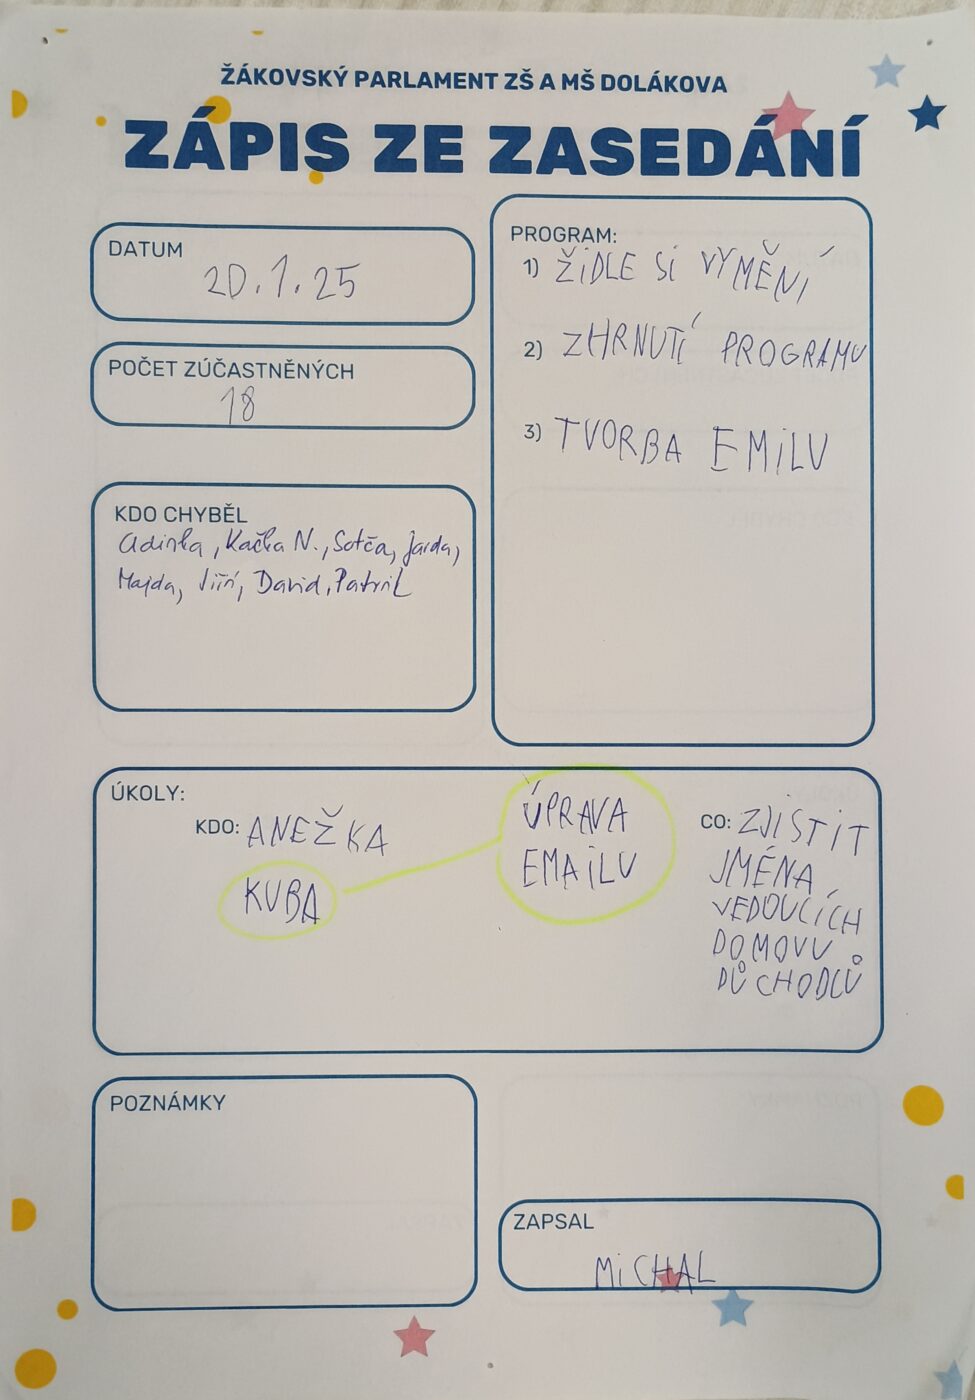 ŽÁKOVSKÝ PARLAMENT ZŠ A MŠ DOLÁKOVA
ZÁPIS ZE ZASEDÁNÍ
DATUM
20.1.25
POČET ZÚČASTNĚNÝCH
18
KDO CHYBĚL
Adinka, Kačka N., Sotča, Jarda,
Majda, Jiří, David, Patrik
PROGRAM:
1) ŽIDLE SI VYMĚNÍ
2) ZHRNUTÍ PROGRAMU
3) TVORBA EMILU
ÚKOLY:
KDO: ANEŽKA
KUBA
ÚPRAVA
EMAILU
CO: ZJISTIT
JMÉNA
VEDOUCÍCH
DOMOVU
DŮCHODCŮ
POZNÁMKY
ZAPSAL
MICHAL